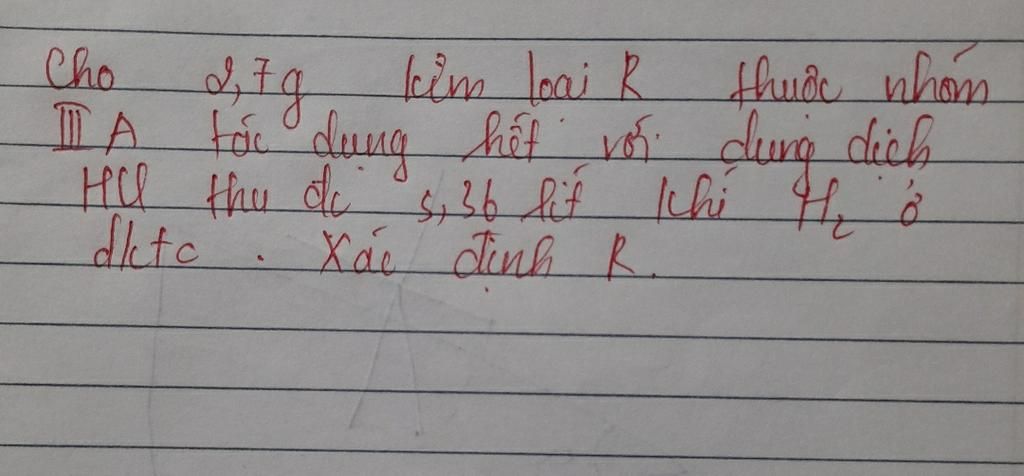 Cho 2,7g kim loại R thuộc nhóm
III A tác dụng hết với dung dịch
HCl thu đc 3,36 lít khí H₂ ở
đktc. Xác định R.